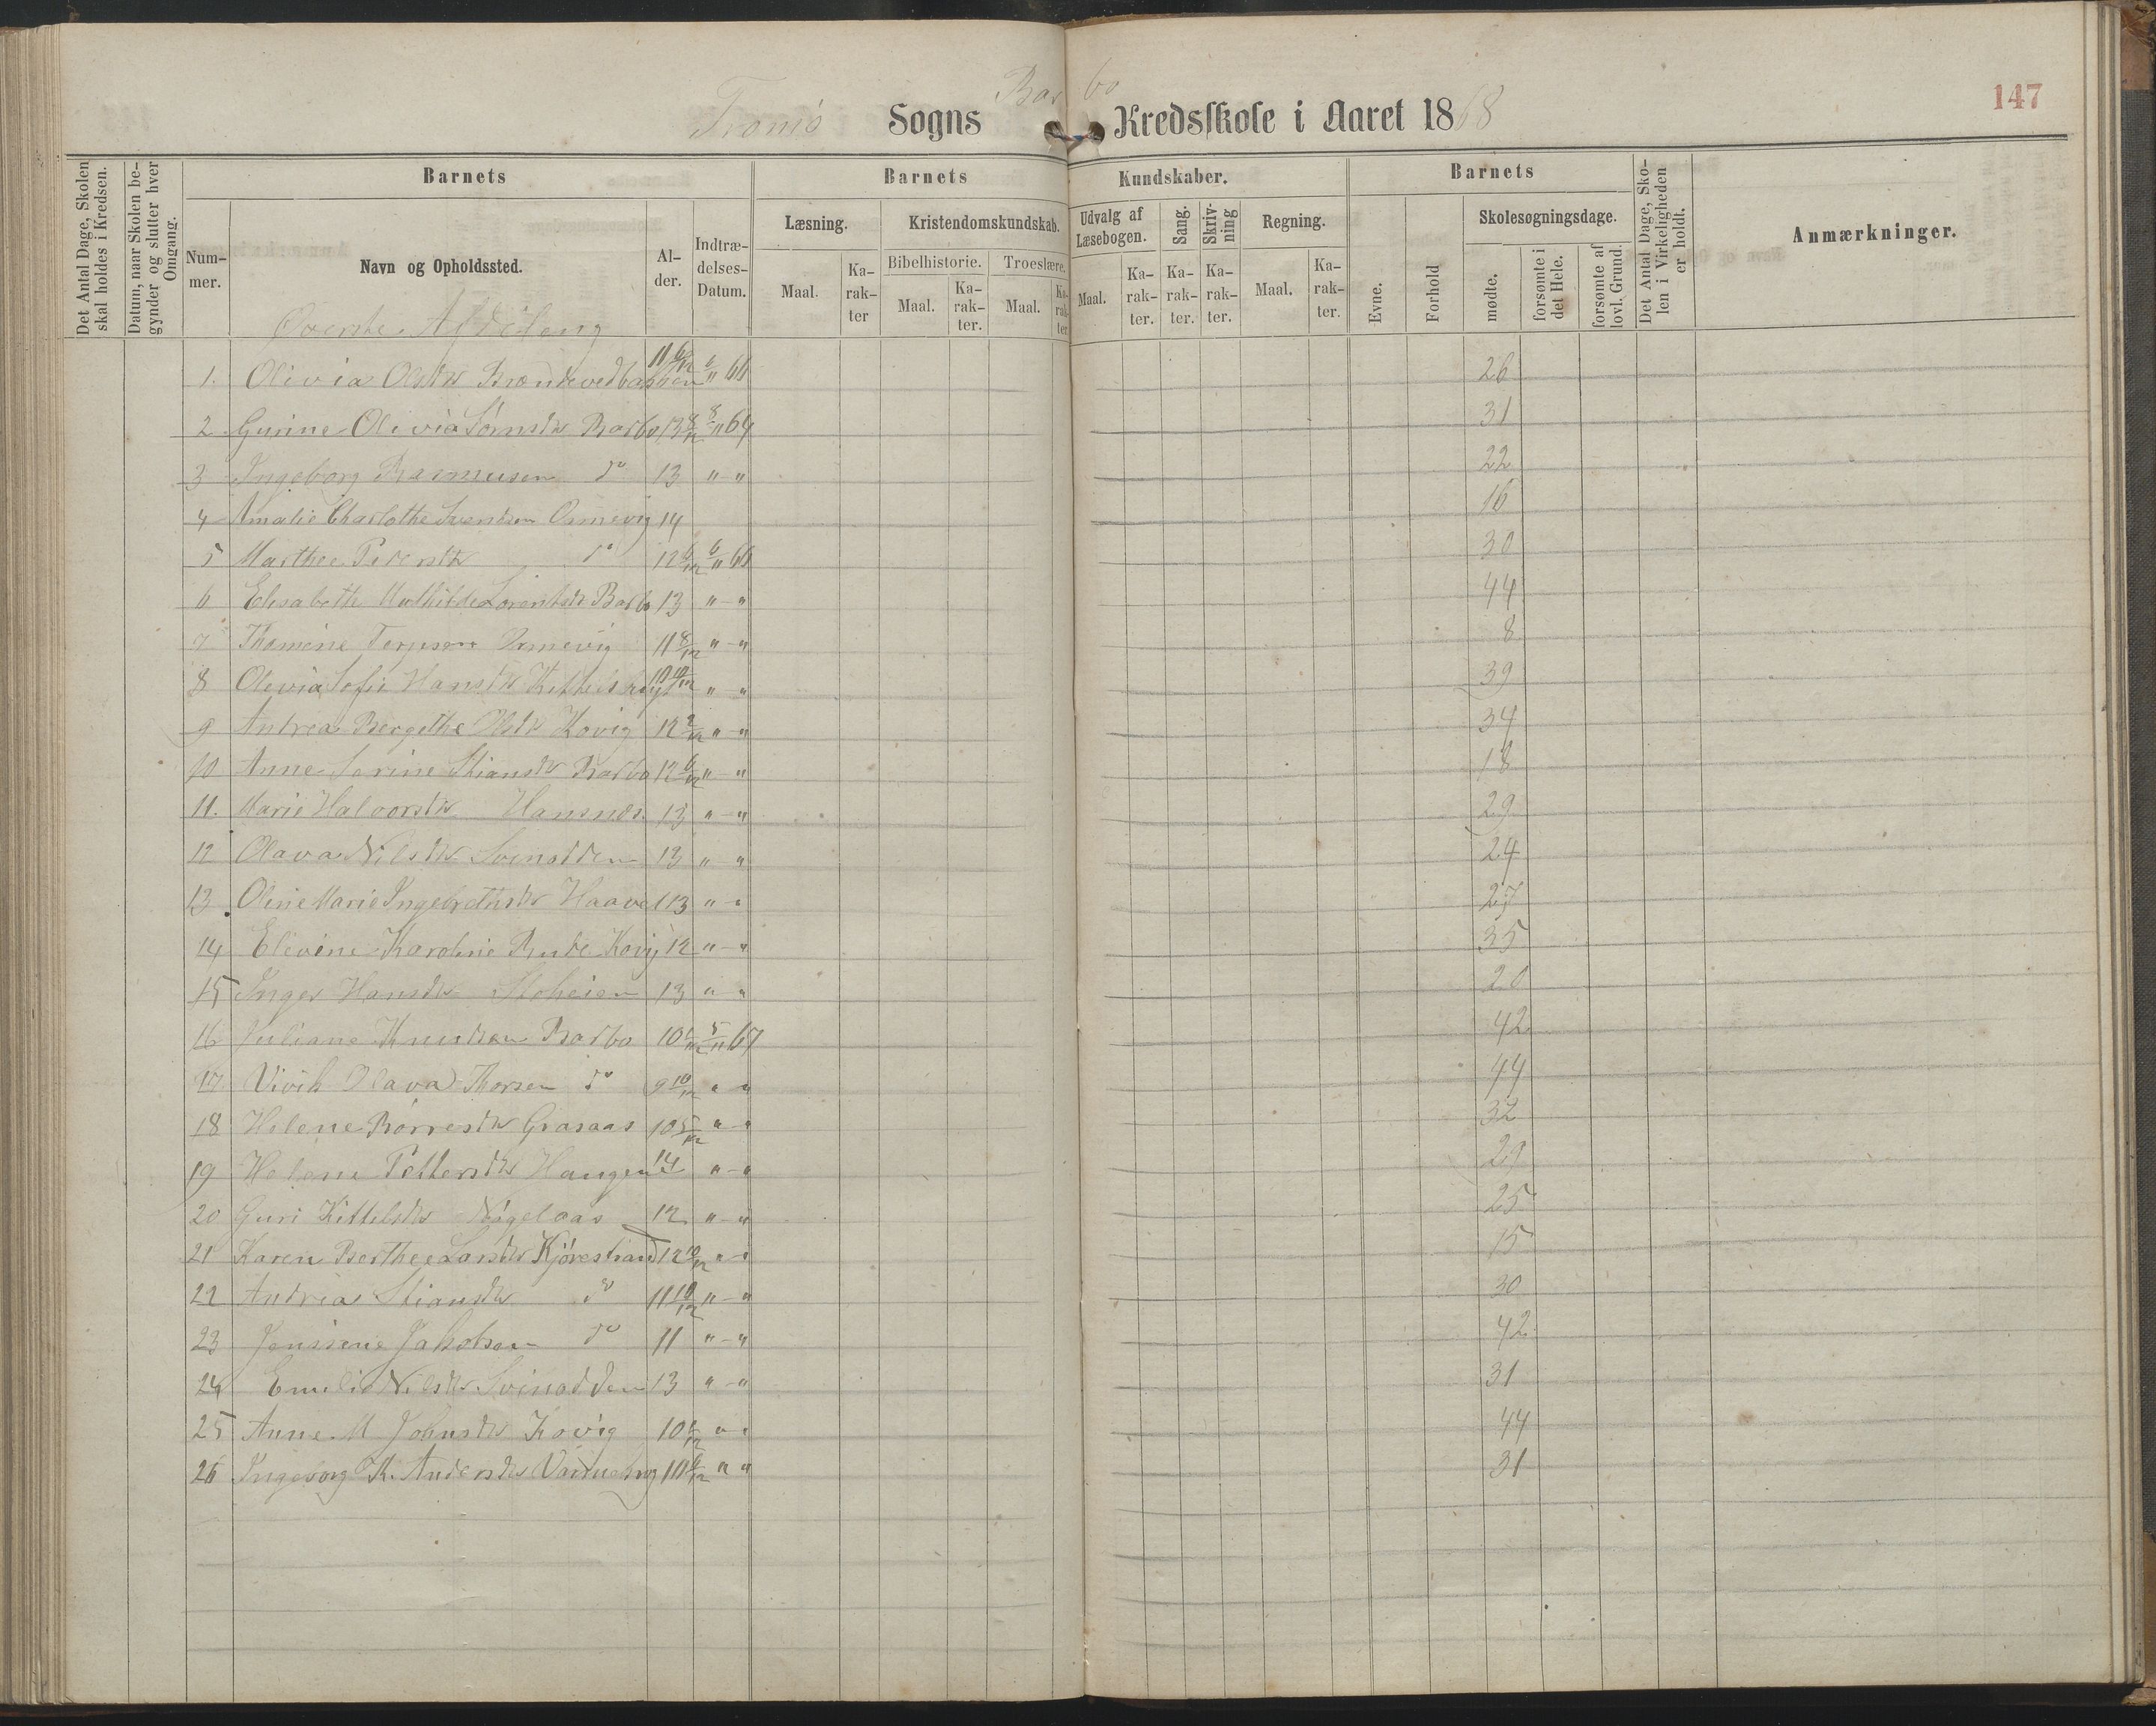 147
Barbo
Tromö Sogns Kredsskole i Aaret 1868
Det Antal Dage, Skolen skal holdes i Kredsen.
Datum, naar Skolen begynder og slutter hver Omgang.
Barnets
Nummer.
Navn og Opholdssted.
Alder.
Indtrædelses-Datum.
Barnets Kundskaber.
Læsning.
Maal. Karakter
Kristendomskundskab.
Bibelhistorie. Troeslære.
Maal. Karakter. Maal. Karakter
Udvalg af Læsebogen.
Maal. Karakter.
Sang. Karakter.
Skrivning Karakter.
Regning.
Maal. Karakter.
Barnets
Evne. Forhold
Skolesøgningsdage.
mødte. forsømte i det Hele. forsømte af lovl. Grund.
Det Antal Dage, Skolen i Virkeligheden er holdt.
Anmærkninger.
Överste Afdeling
1. Olivia Olsdtr Brændevedbakken 11 6/12 6/11 66 26
2 Gurine Olivia Sörnsdtr Barbo 13 8/12 8/11 64 31
3 Ingeborg Rasmusen do 13 " - " 22
4 Amalie Charlothe Svendsen Omevig 14 16
5 Marthee Pedersdtr do 12 6/12 6/11 66 30
6 Elisabeth Mathilde Lorentsdtr Barbo 13 " - " 44
7 Thomine Terjesen Omevig 11 8/12 " - " 8
8 Olevia Sofie Hansdtr Kittelshøyt 10 10/12 " - " 39
9 Andrea Bergithe Olsdtr Kovig 12 2/12 " - " 34
10 Anne Serine Stiansdtr Barbo 12 6/12 " - " 18
11. Marie Halvorsdtr Hansnes 13 " - " 29
12 Olava Nilsdtr Svinodden 13 " - " 24
13 Oline Marie Ingebrethsdtr Haave 13 " - " 27
14 Elevine Karoline Rude Kovig 12 " - " 35
15 Inger Hansdtr Stoheien 13 " - " 20
16 Juliane Knudsen Barbo 10 5/11 67 42
17 Vivik Olava Thorsen do 9 10/12 " " 44
18 Helene Börresdtr Graaas 10 5/12 " - " 32
19 Helene Pettersdtr Haugen 14 " - " 29
20 Guri Kittelsdtr Nögelaas 12 " - " 25
21 Karen Berthee Larsdtr Kjörestrand 12 10/12 " - " 15
22 Andrea Stiansdtr do 11 10/12 " - " 30
23 Jenssine Jakobsen do 11 " - " 42
24 Emilie Nilsdtr Svinodden 13 " - " 31
25 Anne M Johnsdtr Kovig 10 6/12 " - " 44
26 Ingeborg K. Andersdtr 11 6/12 " " 31